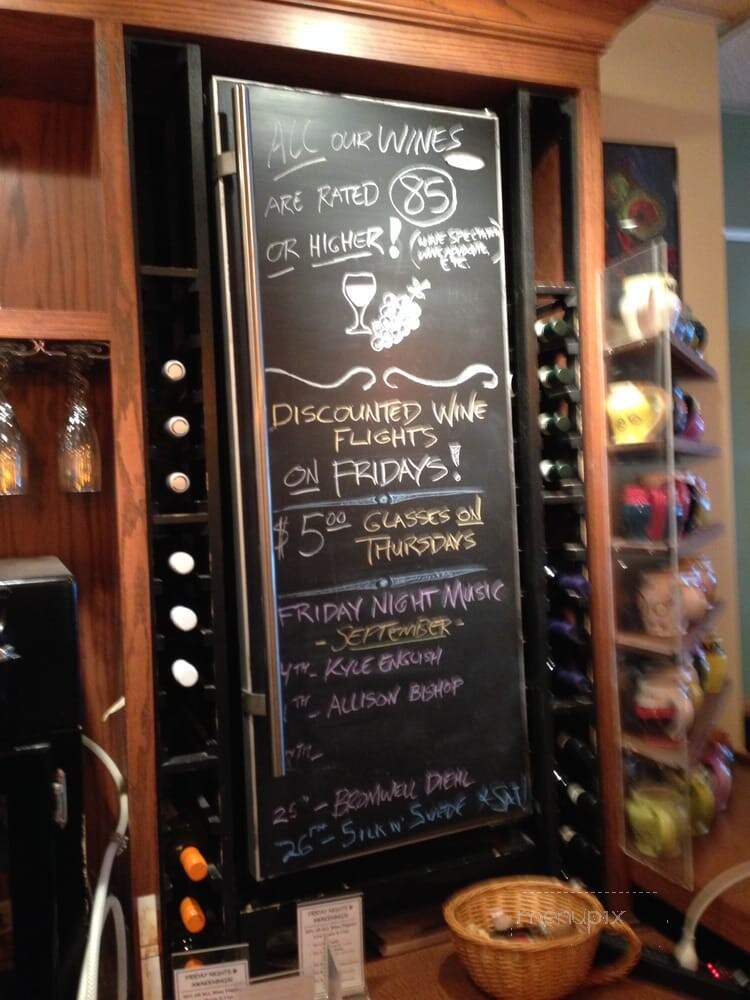 ALL OUR WINES
ARE RATED 85
OR HIGHER! (WINE SPECTATOR,
WINE ADVOCATE,
ETC.
DISCOUNTED WINE
FLIGHTS
ON FRIDAYS!
$5.00 GLASSES ON
THURSDAYS
FRIDAY NIGHT MUSIC
- SEPTEMBER -
4TH - KYLE ENGLISH
TH - ALLISON BISHOP
TH -
25TH - BROMWELL DIEHL
26TH - SILK N' SUEDE *SAT
FRIDAY NIGHTS @
FRIDAY NIGHTS @
menupix